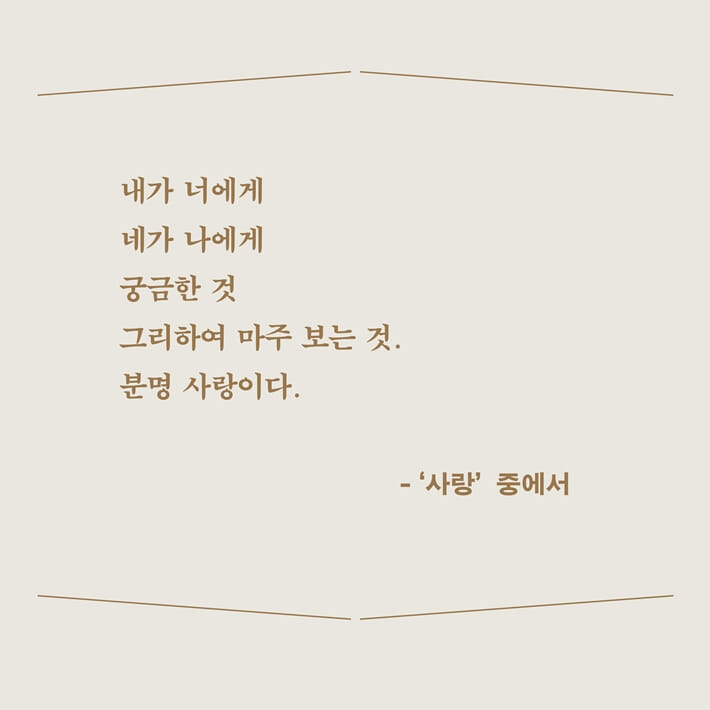 내가 너에게
네가 나에게
궁금한 것
그리하여 마주 보는 것.
분명 사랑이다.
- ‘사랑’ 중에서